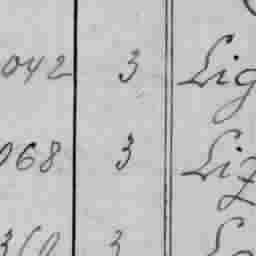 042 3 Lig
068 3 Liz
3